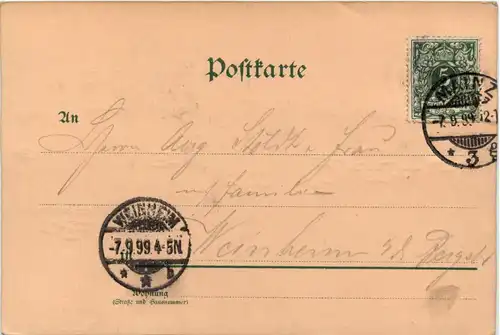 Postkarte
5
MAINZ
-7.9.99. 12-1
* 3 E
An
Herrn Aug Stoldt u. Frau
u. Familie
WEINHEIM
-7.9 99 4-5N.
* * b
Weinheim a/d Bergstr
Wohnung
(Straße und Hausnummer)